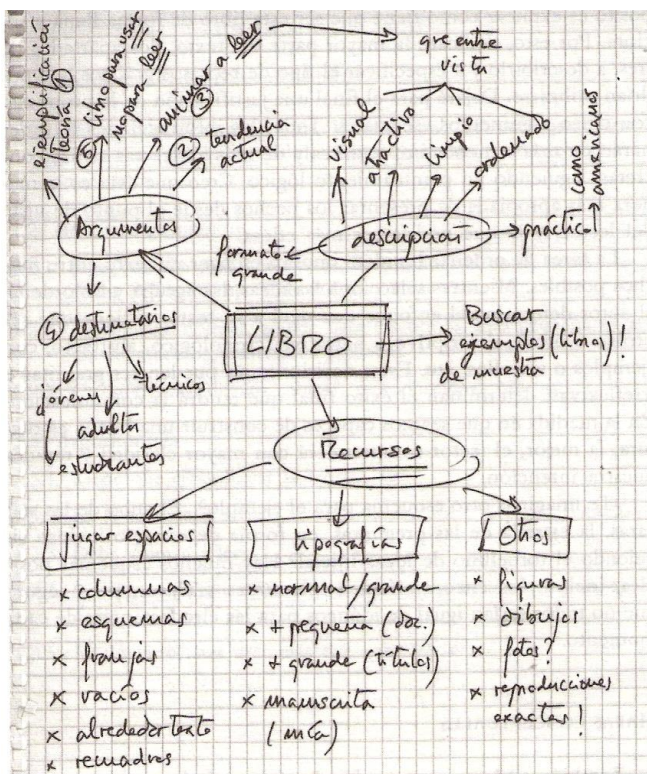 ejemplificación
Teoría ①
⑤ libro para usar
no para leer
animar a leer
③
② tendencia
actual
que entre
vista
visual
atractivo
limpio
ordenado
como
americanos
Argumentos
descripción
práctico
formato
grande
④ destinatarios
jóvenes
técnicos
adultos
estudiantes
LIBRO
Buscar
ejemplos (libros)!
de muestra
Recursos
jugar espacios
x columnas
x esquemas
x franjas
x vacíos
x alrededor texto
x recuadros
tipografías
x normal/grande
x + pequeña (doc.)
x + grande (títulos)
x manuscrita
(mía)
Otros
x figuras
x dibujos
x fotos?
x reproducciones
exactas!